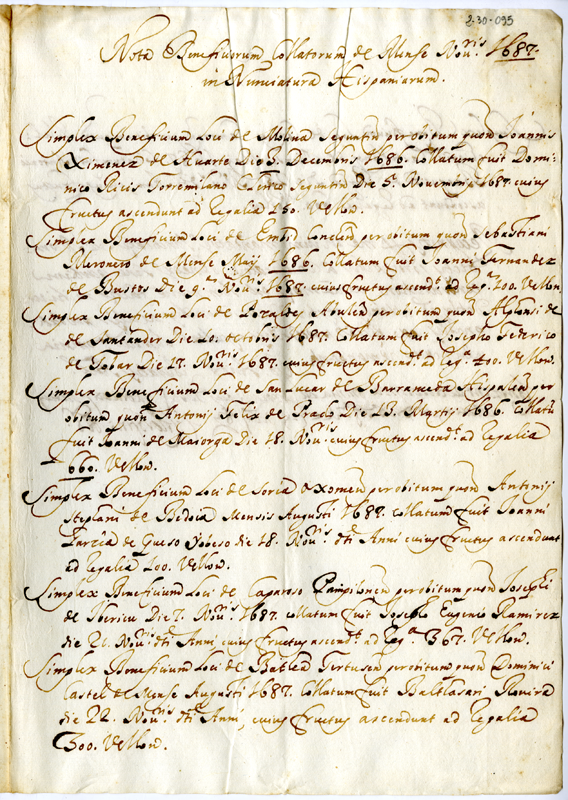 2-30-095
Nota Beneficiorum Collatorum de Mense Nou.ris 1687.
in Nunciatura Hispaniarum.
Simplex Beneficium Loci de Molina Seguntin per obitum quon Joannis
Ximenez de Huarte Die 3. Decembris 1686. Collatum fuit Domi-
nico Ricis Torremilano Clerico Seguntin Die 5. Novembris 1687. cuius
fructus ascendunt ad Regalia 150. Vellon.
Simplex Beneficium Loci de Embid Conchen per obitum quon Sebastiani
Meronero de Mense Maij 1686. Collatum fuit Joanni Fernandez
de Bustos Die 9.a Nou.ris 1687. cuius fructus ascend.t ad Reg.a 200. Vellon.
Simplex Beneficium Loci de Pozaldez Abulen per obitum quon Alfonsi de
de Santander Die 20. octobris 1687. Collatum fuit Josepho Federico
de Tobar Die 17. Nou.ris 1687. cuius fructus ascend.t ad Reg.a 410. Vellon.
Simplex Beneficium Loci de San Lucar de Barrameda Hispalen per
obitum quon Antonij Felix de Prado Die 23. Martij 1686. Collatũ
fuit Joanni de Maiorga Die 18. Nou.ris cuius fructus ascend.t ad Regalia
660. Vellon.
Simplex Beneficium Loci de Soria Oxomen per obitum quon Antonij
Stephani de Bedoia Mensis Augusti 1687. Collatum fuit Joanni
Garcia de Gueso die 18. Nou.ris dti Anni cuius fructus ascendunt
ad Regalia 200. Vellon.
Simplex Beneficium Loci de Caparoso Pampilonen per obitum quon Josephi
de Ibericu Die 7. Nou.ris 1687. collatum fuit Josepho Eugenio Ramirez
die 21. Nou.ris dti Anni cuius fructus ascend.t ad Reg.a 367. Vellon.
Simplex Beneficium Loci de Batlea Tertusen per obitum quon Dominici
Castel de Mense Augusti 1687. Collatum fuit Balthasari Rovira
die 22. Nou.ris dti Anni, cuius fructus ascendunt ad Regalia
300. Vellon.